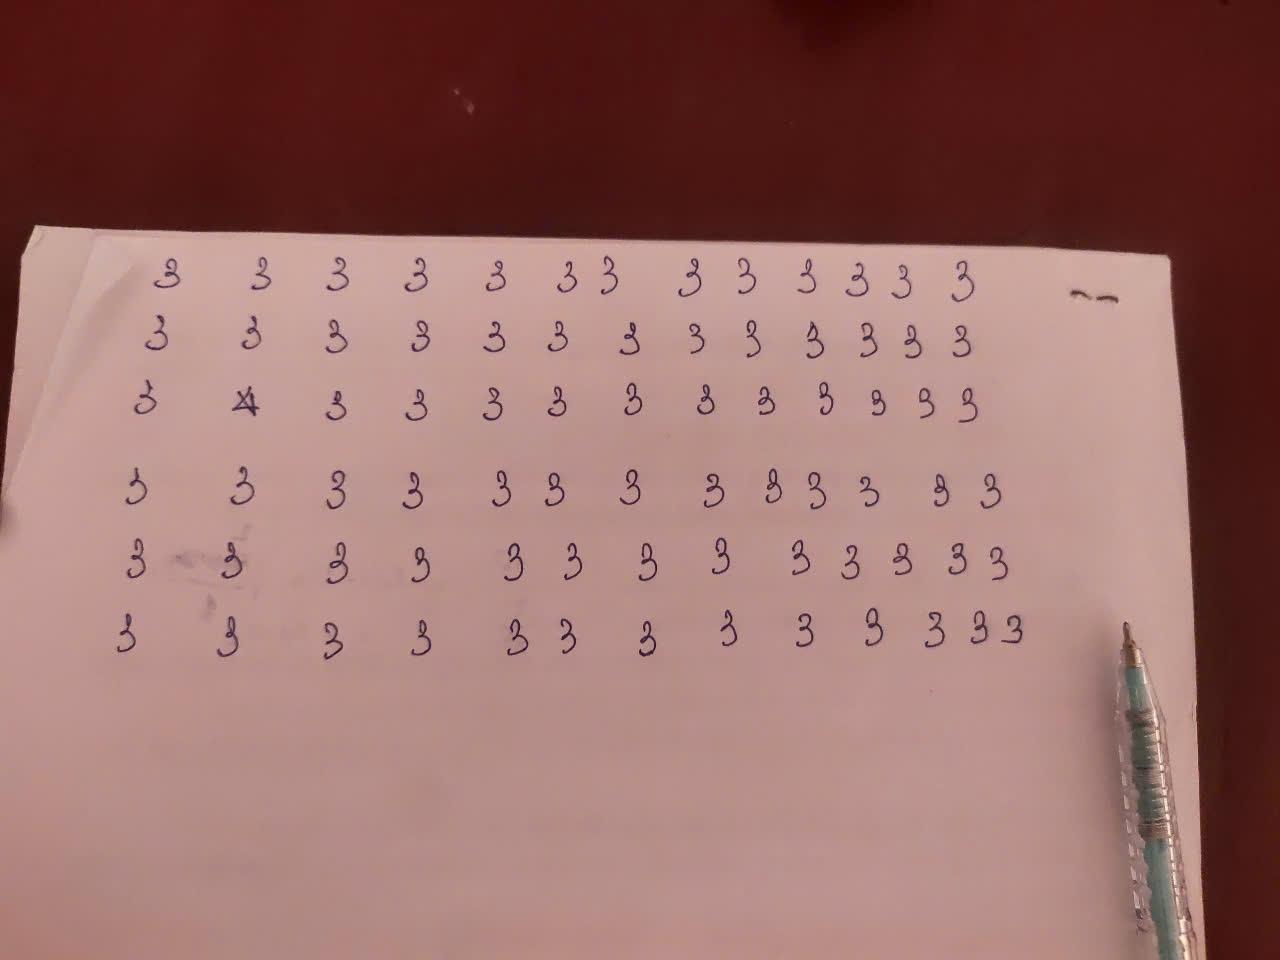 3 3 3 3 3 3 3 3 3 3 3 3 3 --
3 3 3 3 3 3 3 3 3 3 3 3 3
3 4 3 3 3 3 3 3 3 3 3 3 3
3 3 3 3 3 3 3 3 3 3 3 3 3
3 3 3 3 3 3 3 3 3 3 3 3 3
3 3 3 3 3 3 3 3 3 3 3 3 3